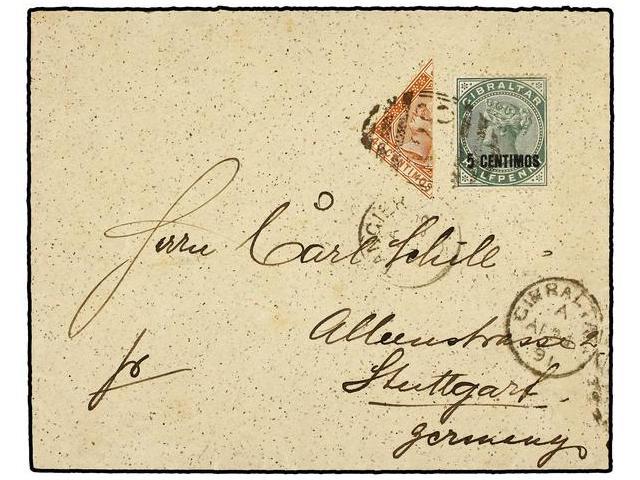 GIBRALTAR
5 CENTIMOS
HALFPENNY
CENTIMOS
Herrn Carl Schill
Alleenstrasse
Stuttgart.
Germany
fr
GIBRALTAR
A
91